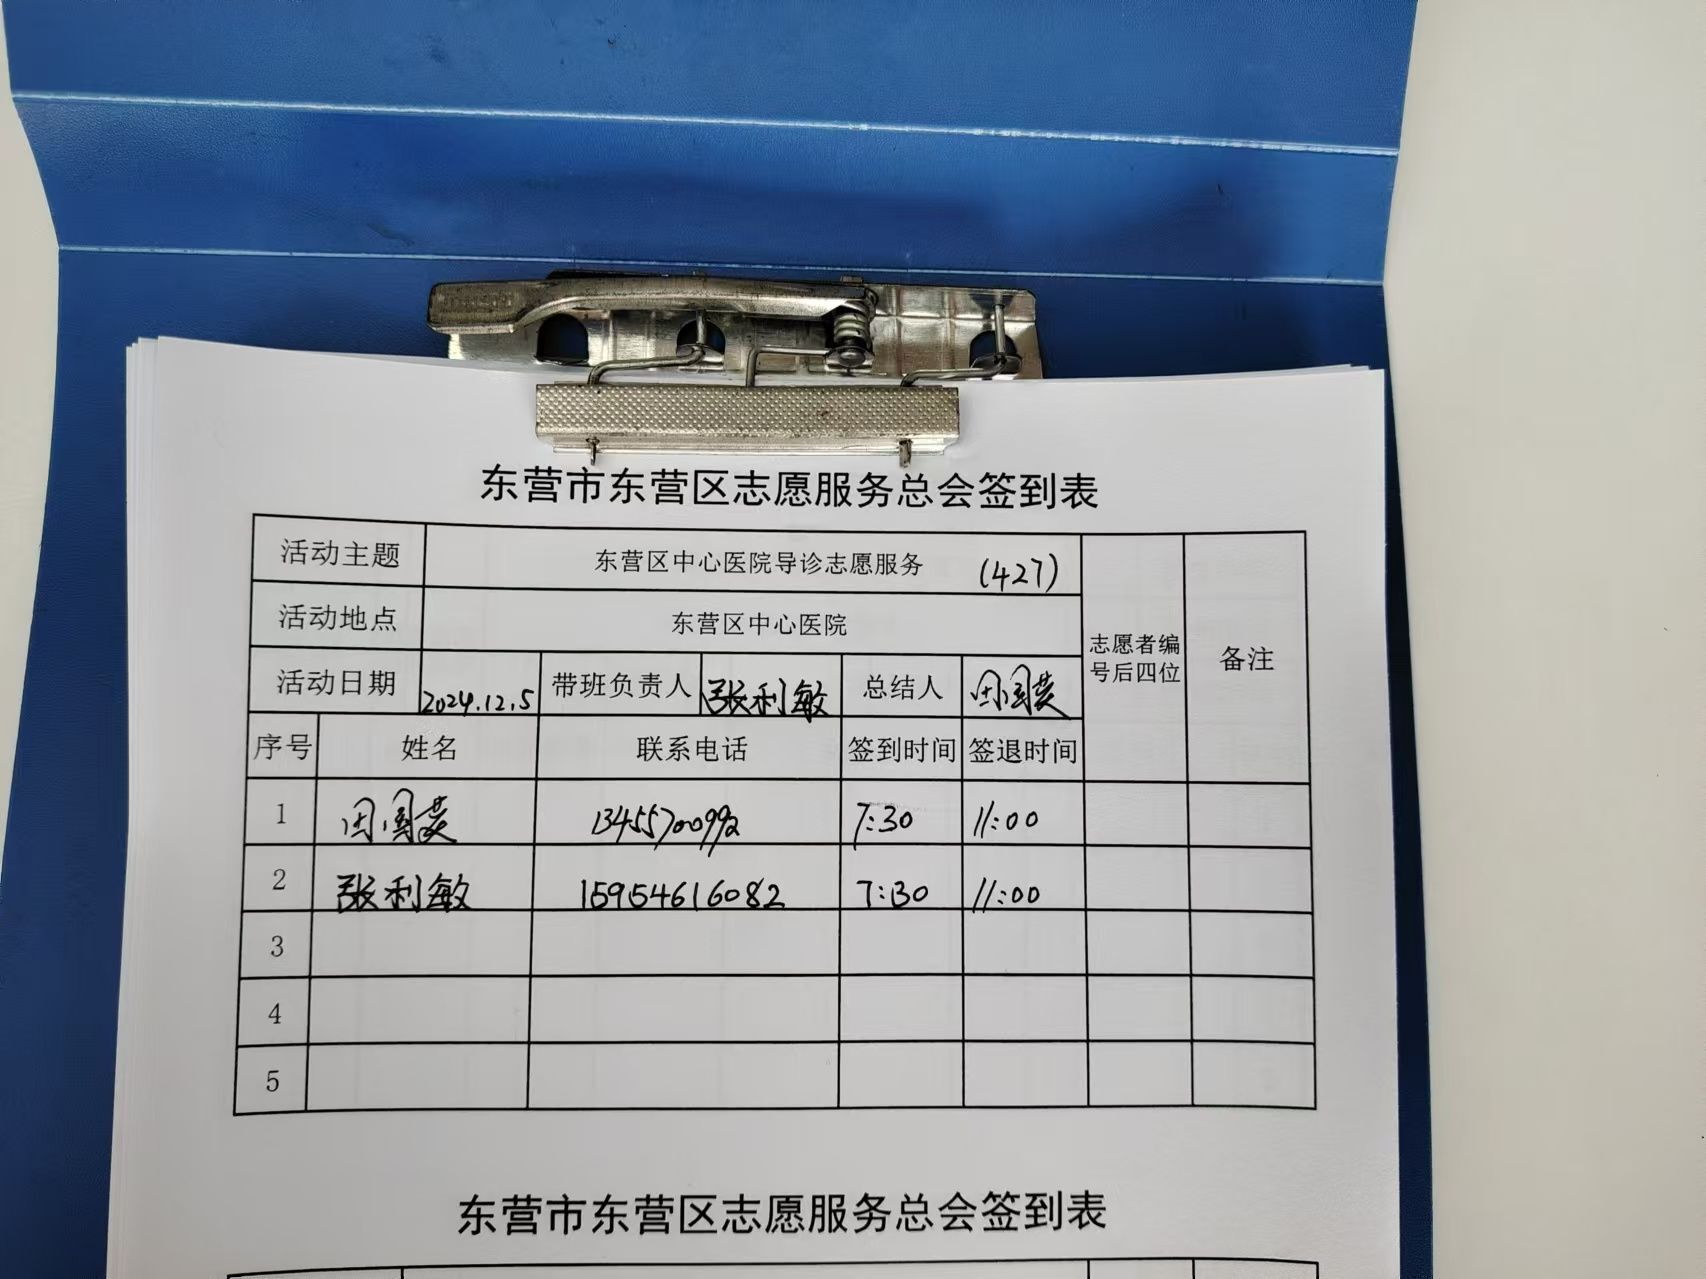 东营市东营区志愿服务总会签到表
活动主题 东营区中心医院导诊志愿服务 (427)
活动地点 东营区中心医院
志愿者编号后四位 备注
活动日期 2024.12.5 带班负责人 张利敏 总结人 田国英
序号 姓名 联系电话 签到时间 签退时间
1 田国英 13455700992 7:30 11:00
2 张利敏 15954616082 7:30 11:00
3
4
5
东营市东营区志愿服务总会签到表